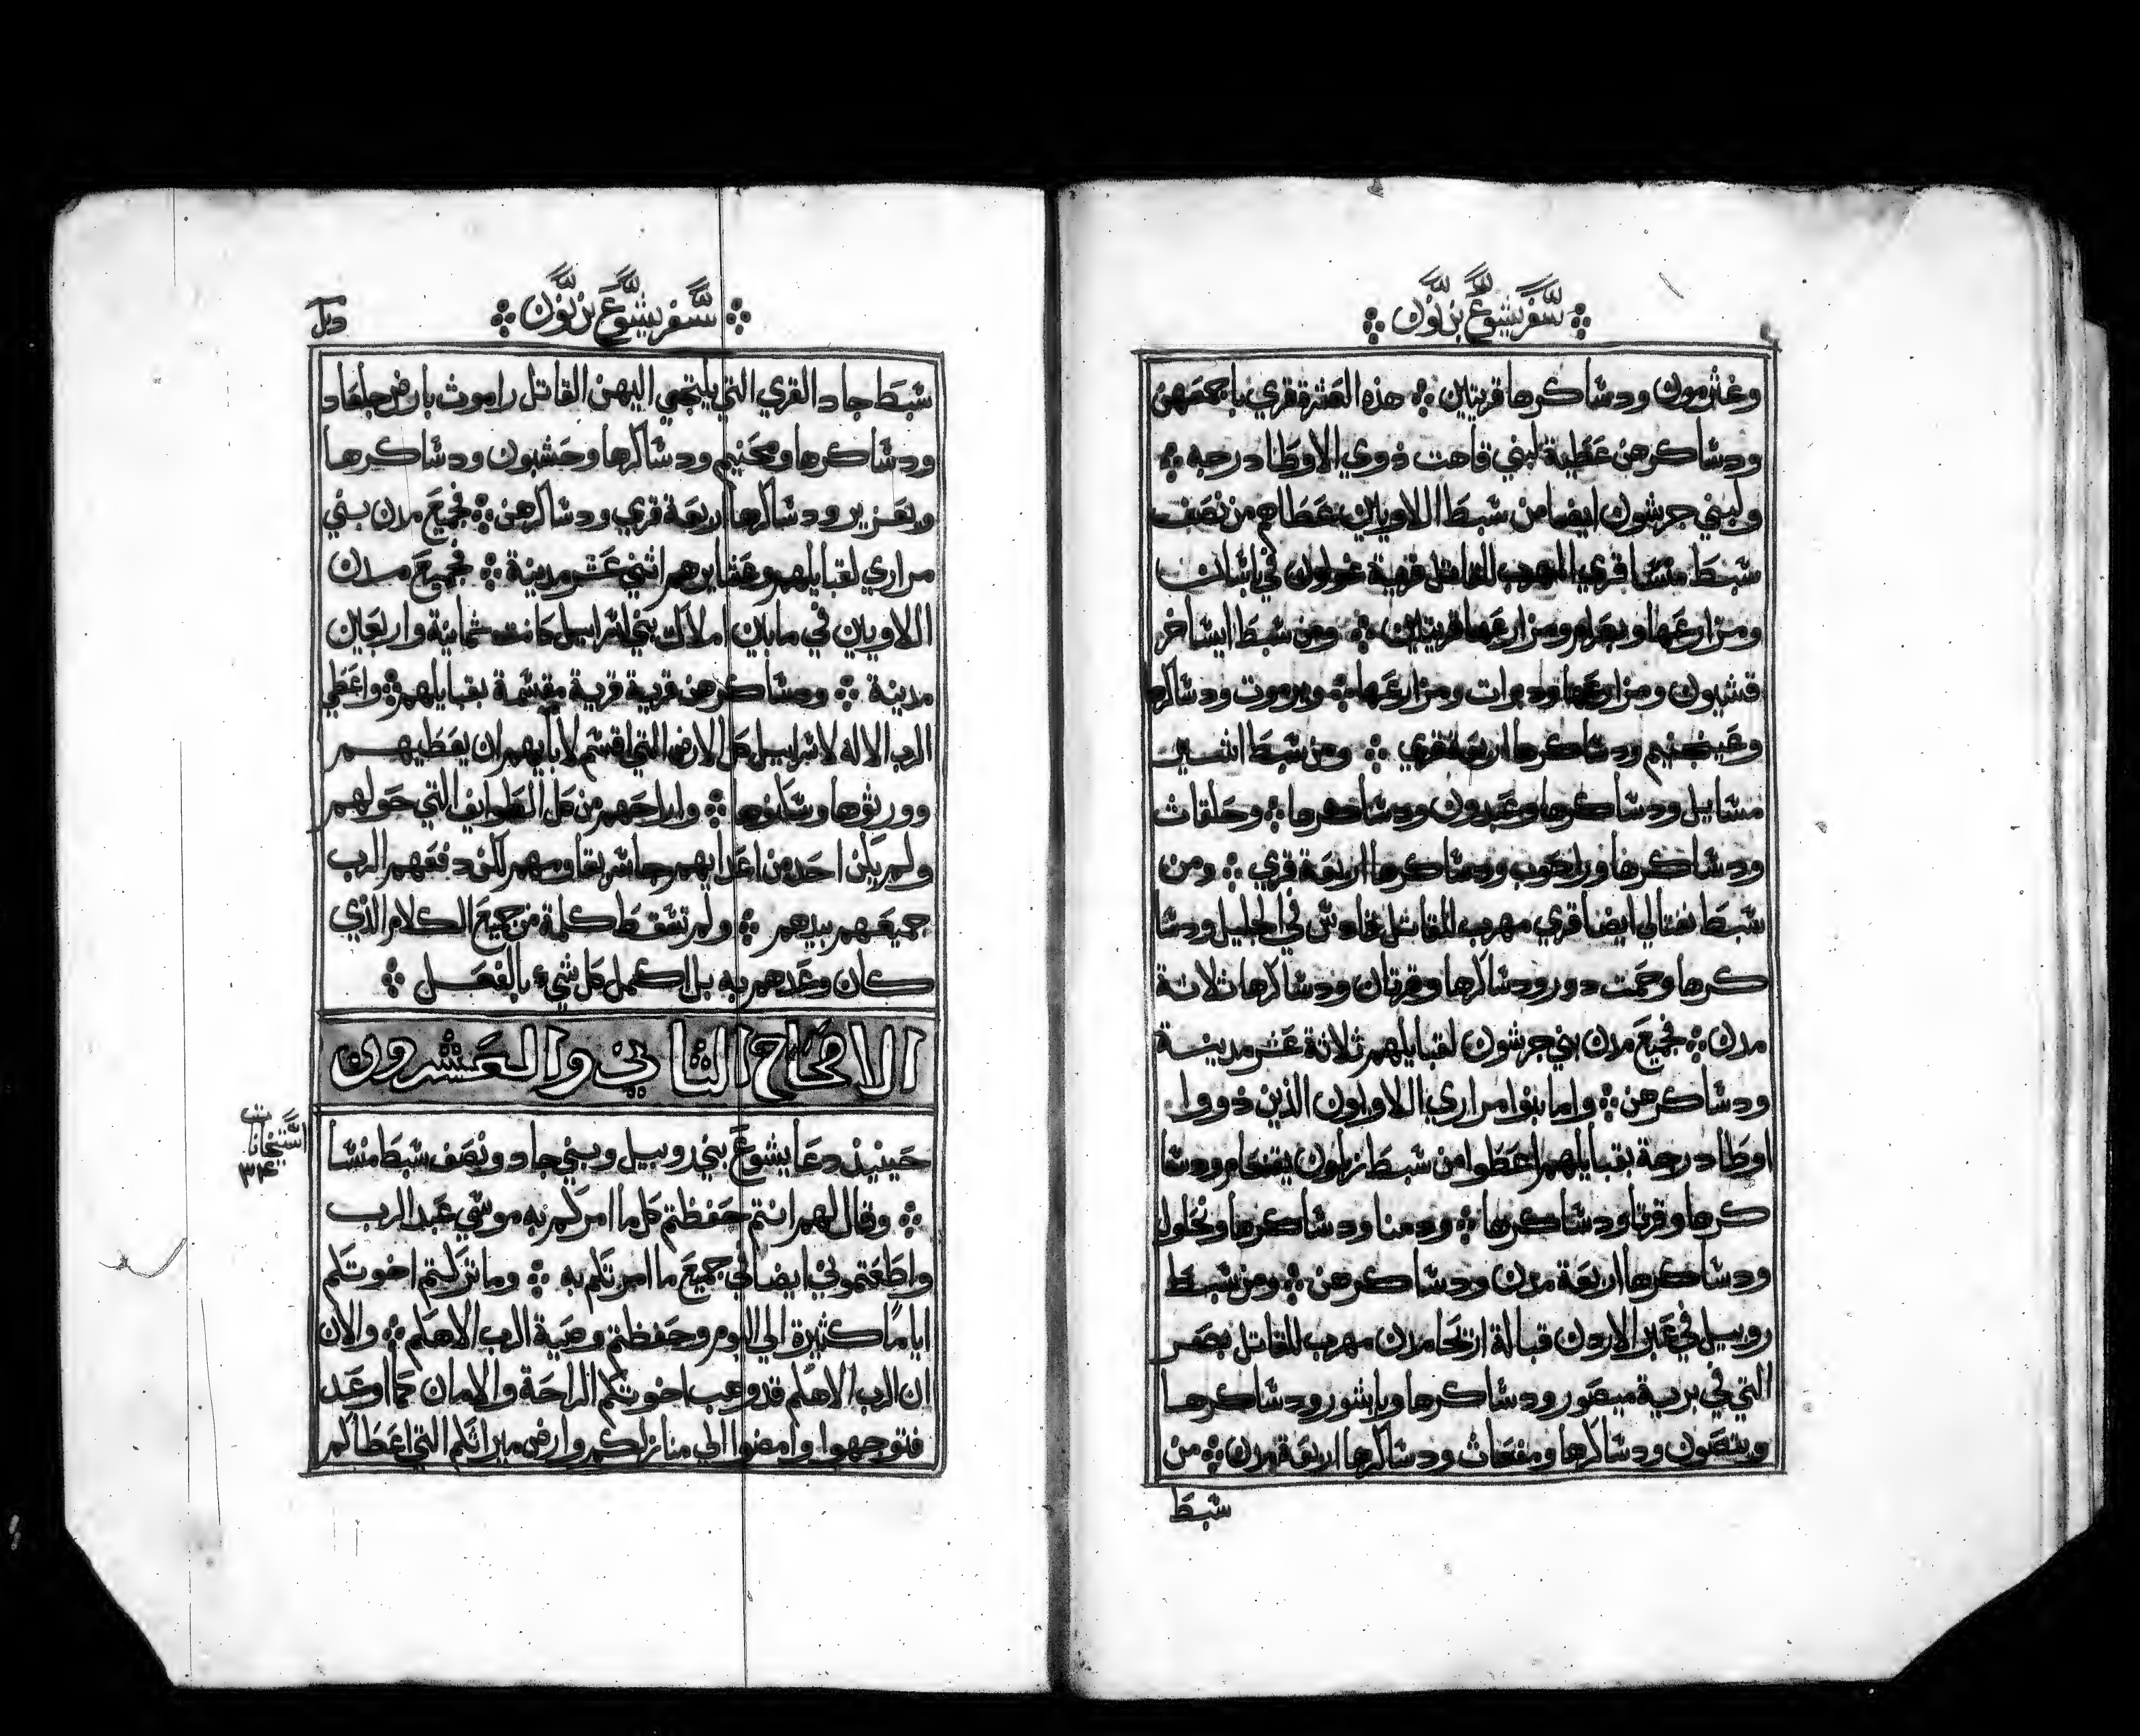 سفر يشوع بن نون
وغثرمون ودشاكرها قريتين ※ هذه العشرة قري باجمعهن
ودشاكرهن عطية لبني قاهت ذوي الاوطا درجه ※
ولبني جرشون ايضا من شبط اللاويين عطاهم من نصف
شبط منسا قري المهرب للقاتل قرية غولون في باشان
ومزارعها وبعرام ومزارعها قريتين ※ ومن شبط ايساخر
قشيون ومزارعها ودبرات ومزارعها ※ ويرموت ودشاكرها
وعين جنيم ودشاكرها اربعة قري ※ ومن شبط اشير
مشايل ودشاكرها وعبدون ودشاكرها ※ وحلقاث
ودشاكرها وراحوب ودشاكرها اربعة قري ※ ومن
شبط نفتالي ايضا قري مهرب للقاتل قادش في الجليل ودشا
كرها وحمت دور ودشاكرها وقرتان ودشاكرها ثلاثة
مدن ※ فجميع مدن بني جرشون لقبايلهم ثلاثة عشر مدينة
ودشاكرهن ※ واما بنوا مراري اللاويون الذين ذووا
اوطا درجة بقبايلهم اعطوا من شبط زبلون يقنعام ودشا
كرها وقرتا ودشاكرها ※ ودمنا ودشاكرها ونحلول
ودشاكرها اربعة مدن ودشاكرهن ※ ومن شبط
روبيل في عبر الاردن قبالة اريحا مدن مهرب للقاتل بصر
التي في برية ميصور ودشاكرها وياشور ودشاكرها
ويتصون ودشاكرها ومفعاث ودشاكرها اربعة مدن ※ من
شبط
سفر يشوع بن نون
شبط جاد القري التي يلتجي اليهن القاتل راموث بارض جلعاد
ودشاكرها ومحنيم ودشاكرها وحشبون ودشاكرها
ويعزير ودشاكرها اربعة قري ودشاكرهن ※ فجميع مدن بني
مراري لقبايلهم وعشايرهم اثني عشر مدينة ※ فجميع مدن
اللاويين في مابين املاك بني اسراييل كانت ثمانية واربعين
مدينة ※ ودشاكرهن قرية قرية مقسمة بقبايلهم ※ واعطي
الرب الاله لاسراييل كل الارض التي اقسم لابايهم ان يعطيهم
وورثوها وسكنوها ※ واراحهم من كل الطوايف التي حولهم
ولم يكن احد من اعدايهم جاسر يقاومهم لكن دفعهم الرب
جميعهم بيدهم ※ ولم تسقط كلمة من جميع الكلام الذي
كان وعدهم به بل اكمل كل شيء بالفعل ※
الاصحاح الثاني والعشرون
حينيذ دعا يشوع بني روبيل وبني جاد ونصف شبط منسا
※ وقال لهم انتم حفظتم كل ما امركم به موسي عبد الرب
واطعتموني ايضا في جميع ما امرتكم به ※ وما تركتم اخوتكم
اياما كثيرة الي اليوم وحفظتم وصية الرب الاهكم ※ والان
ان الرب الاهكم قد وهب اخوتكم الراحة والامان كما اوعد
فتوجهوا وامضوا الي منازلكم وارض ميراثكم التي اعطاكم